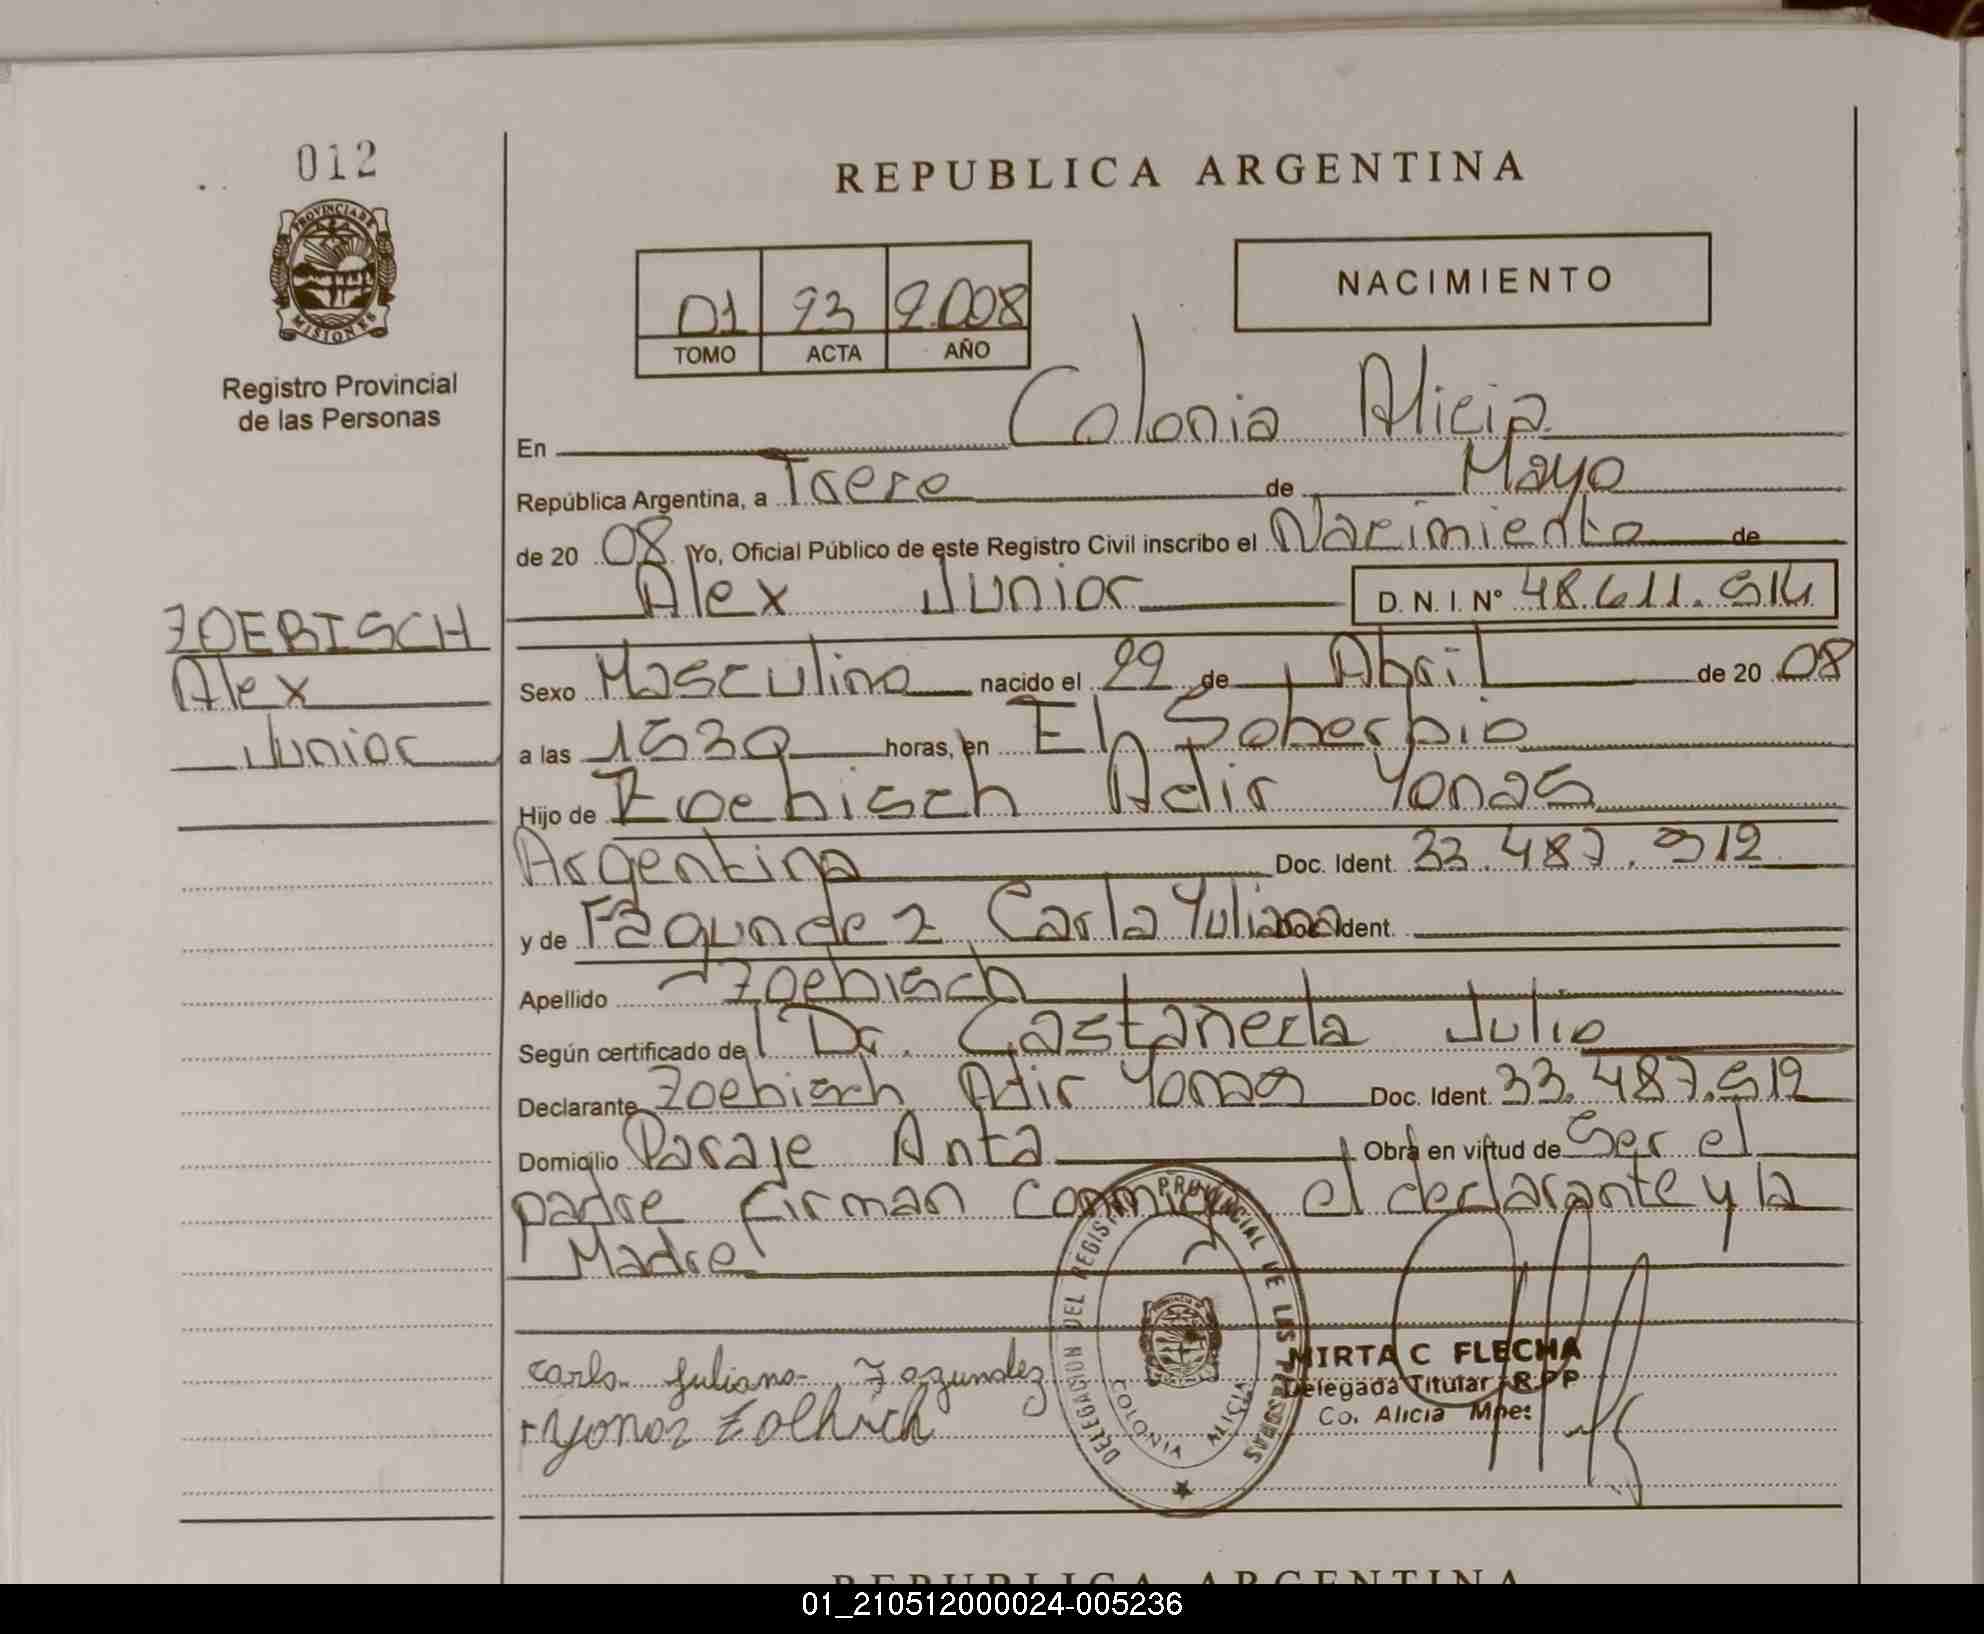 012
PROVINCIA DE
MISIONES
Registro Provincial
de las Personas
REPUBLICA ARGENTINA
01 23 2.008
TOMO ACTA AÑO
NACIMIENTO
En Colonia Alicia
República Argentina, a Trece de Mayo
de 20 08 Yo, Oficial Público de este Registro Civil inscribo el Nacimiento de
Alex Junior D. N. I. N° 48.611.914
ZOEBISCH
Alex
Junior
Sexo Masculino nacido el 22 de Abril de 20 08
a las 1530 horas, en El Soberbio
Hijo de Zoebisch Adir Yonas
Argentina Doc. Ident. 33.487.912
y de Fagundez Carla Yuliana Doc. Ident.
Apellido Zoebisch
Según certificado de Dr. Castañeda Julio
Declarante Zoebisch Adir Yonas Doc. Ident. 33.487.912
Domicilio Paraje Anta Obra en virtud de Ser el
padre firman conmigo el declarante y la
Madre
DELEGACION DEL REGISTRO PROVINCIAL DE LAS PERSONAS
COLONIA ALICIA
Carla Juliana Fagundez
Yonas Zoebisch
MIRTA C FLECHA
Delegada Titular R.P.P
Co. Alicia Mnes
REPUBLICA ARGENTINA
01_210512000024-005236